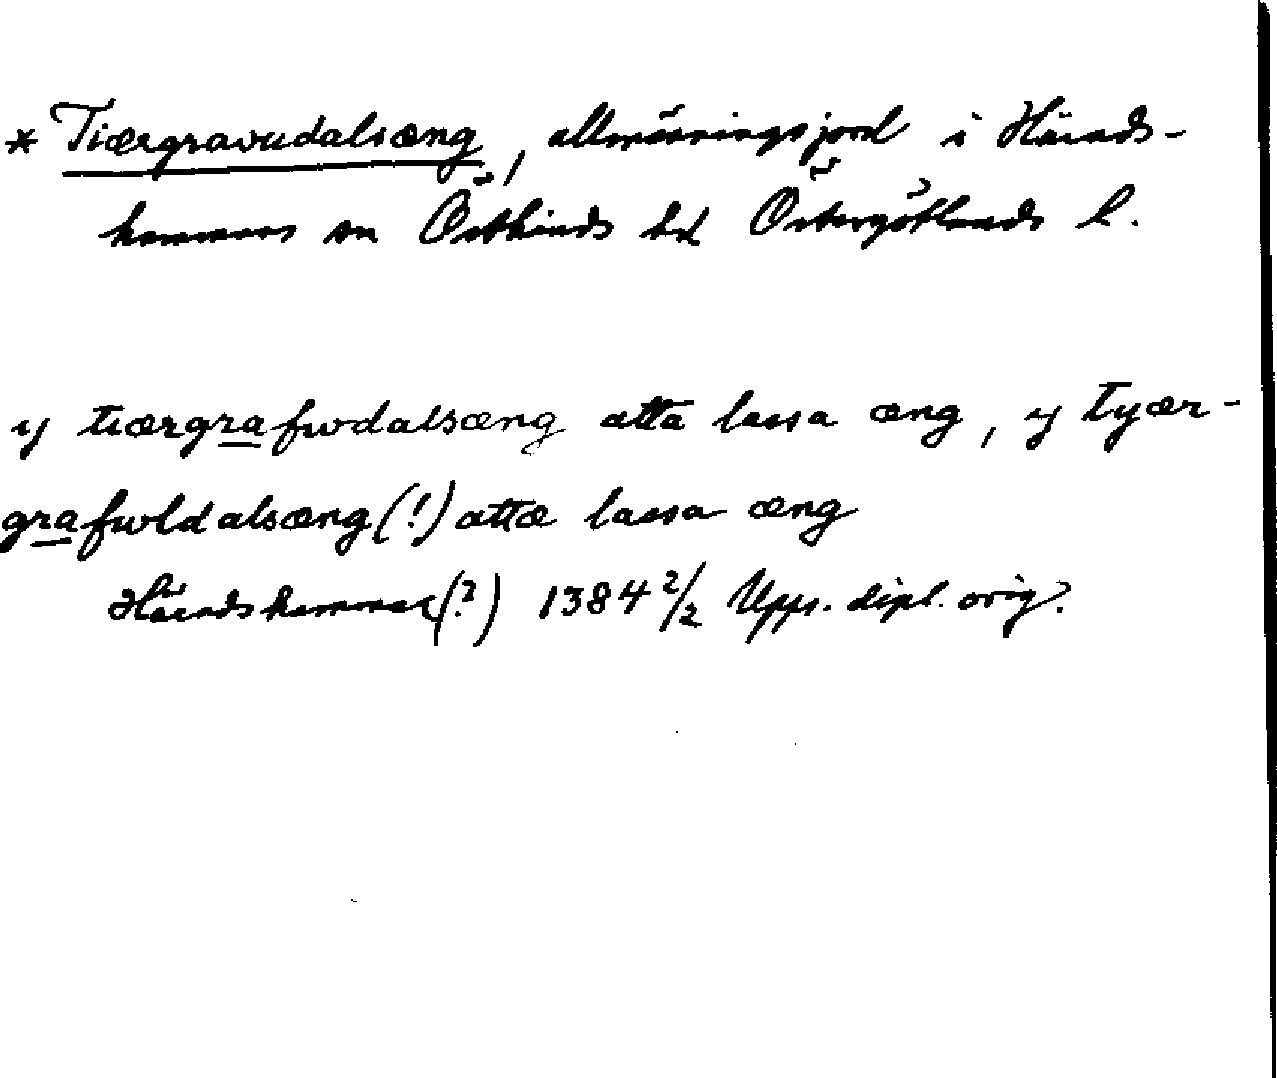 * Tiærgravudalsæng, allmänningsjord i Härads-
hammars sn Östkinds hd Östergötlands l.
y tiærgrafwdalsæng atta lassa æng, y tyær-
grafwldalsæng (!) attæ lassa æng
Häradshammar (?) 1384 2/2 Upps. dipl. orig.